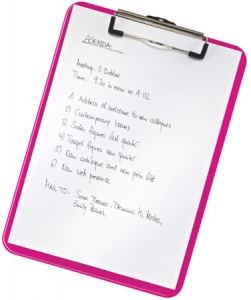 AGENDA
Meeting: 8 October
Time: 9:30 in room no A 112
1) Address of welcome to new colleagues
2) Contemporary issues
3) Sales figures last quarter
4) Target figures new quarter
5) New catalogue and new price list
6) New web presence
MAIL TO: Dominic
Emily